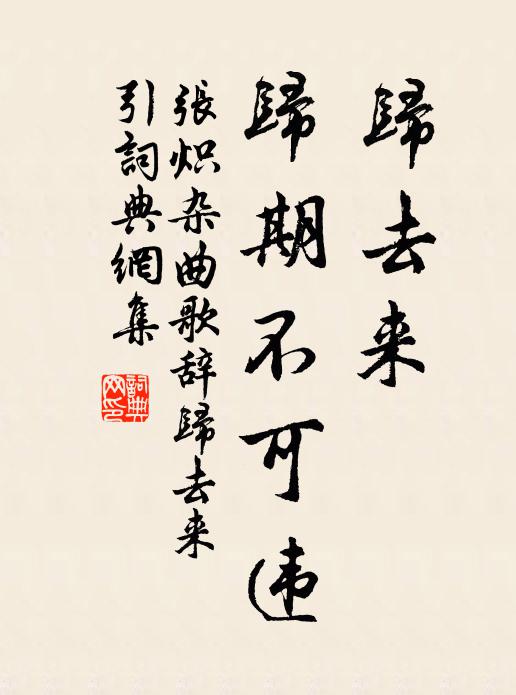 歸去来
歸期不可违
張炽杂曲歌辞歸去来
引詞典網集
詞典
网印